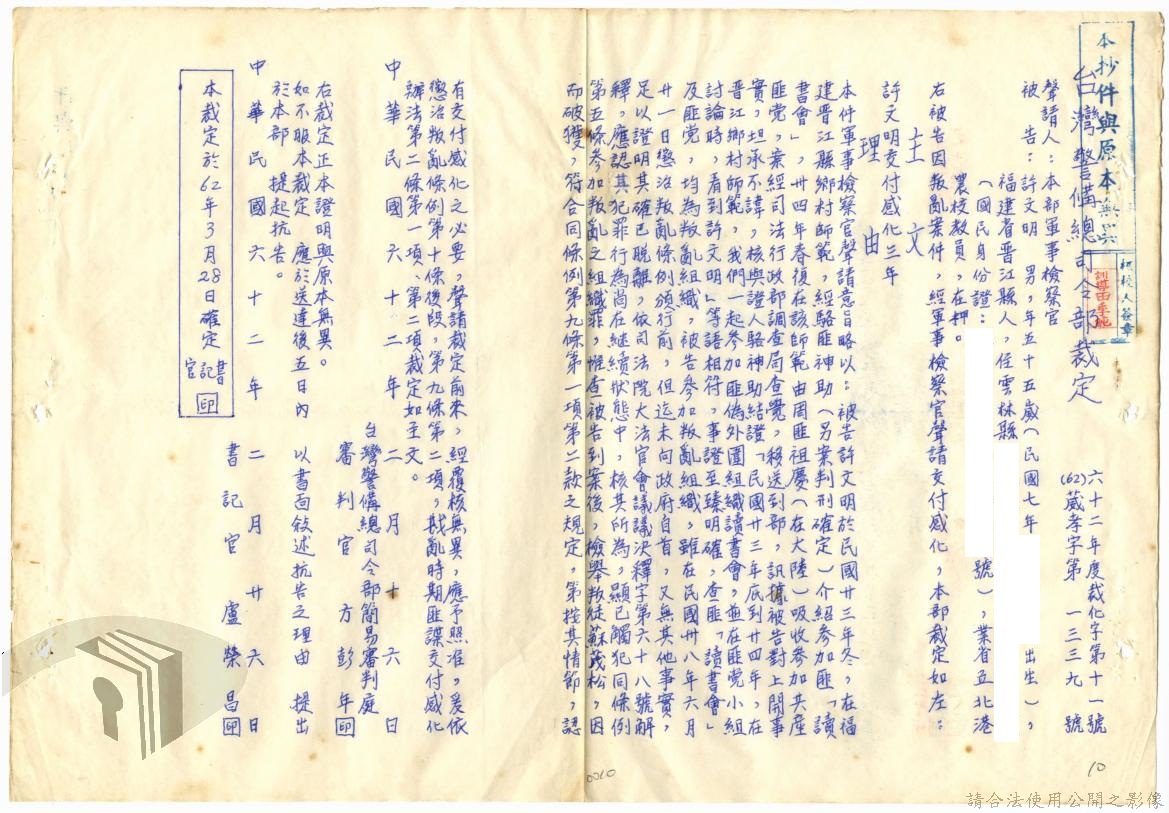 本抄件與原本無異
台灣警備總司令部裁定
六十二年度裁化字第十一號
(62)葳孝字第一三三九號
聲請人：本部軍事檢察官
被　告：許文明　男，年五十五歲（民國七年　出生），
福建省晉江縣人，住雲林縣
（國民身份證：　號），業省立北港
農校教員，在押。
右被告因叛亂案件，經軍事檢察官聲請交付感化，本部裁定如左：
主文
許文明交付感化三年
理由
本件軍事檢察官聲請意旨略以：被告許文明於民國卅三年冬，在福
建晉江縣鄉村師範，經駱匪神助（另案判刑確定）介紹參加匪「讀
書會」，卅四年春復在該師範由周匪祖慶（在大陸）吸收參加共產
匪党，案經司法行政部調查局查覺，移送到部，訊據被告對上開事
實，坦承不諱，核與證人駱神助結證「民國卅三年底到卅四年，在
晉江鄉村師範，我們一起參加匪偽外圍組織讀書會，並在匪党小組
討論時，看到許文明」等語相符，事證至臻明確，查匪「讀書會」
及匪党，均為叛亂組織，被告參加叛亂組織，雖在民國卅八年六月
廿一日懲治叛亂條例頒行前，但迄未向政府自首，又無其他事實，
足以證明其確已脫離，依司法院大法官會議議決釋字第六十八號解
釋，應認其犯罪行為尚在繼續狀態中，核其所為，顯已觸犯同條例
第五條參加叛亂之組織罪，惟查被告到案後，檢舉叛徒蘇茂松，因
而破獲，符合同條例第九條第一項第二款之規定，第按其情節，認
有交付感化之必要，聲請裁定前來，經覆核無異，應予照准，爰依
懲治叛亂條例第十條後段，第九條第二項，戡亂時期匪諜交付感化
辦法第二條第一項、第二項裁定如主文。
中華民國六十二年二月十六日
台灣警備總司令部簡易審判庭
審判官　方彭年　印
右裁定正本證明與原本無異。
如不服本裁定應於送達後五日內以書面敘述抗告之理由提出
於本部提起抗告。
中華民國六十二年二月廿六日
書記官　盧榮昌　印
本裁定於62年3月28日確定
書記官　印
0010
10
請合法使用公開之影像